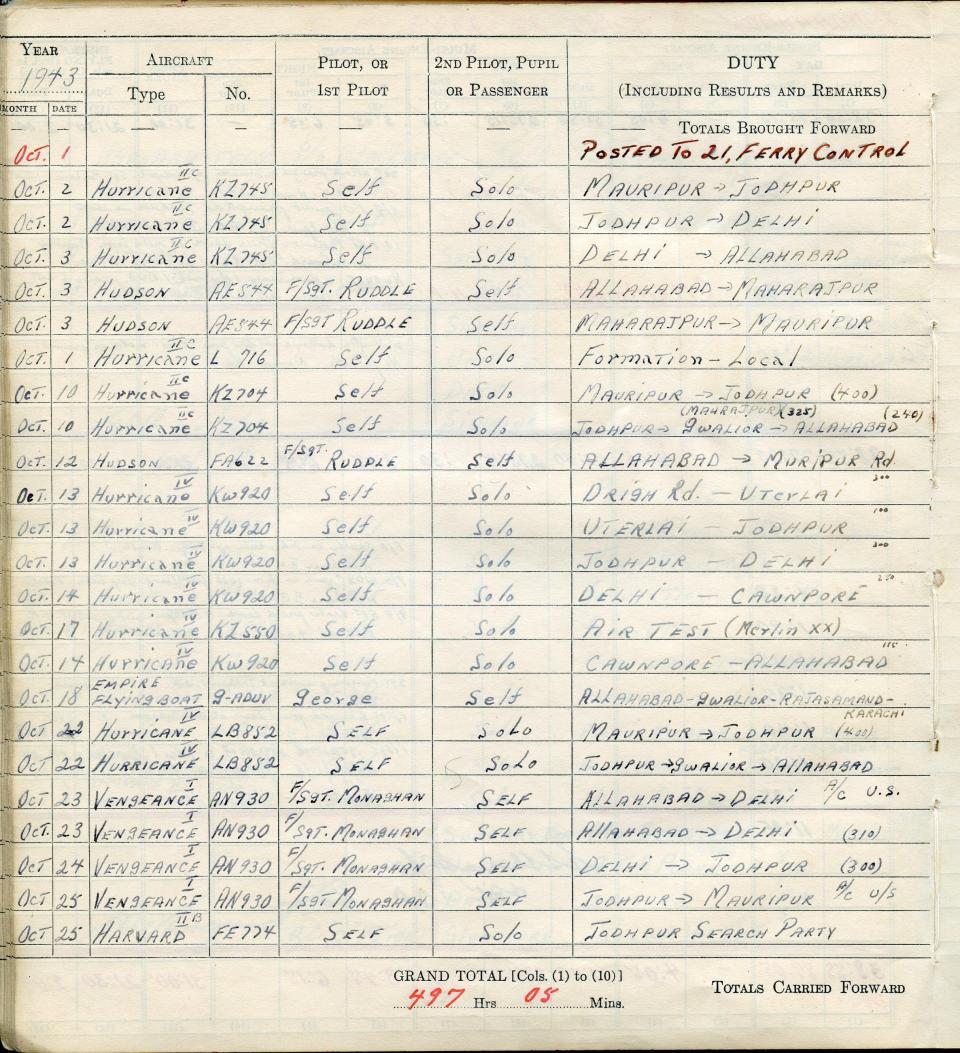 YEAR AIRCRAFT PILOT, OR 2ND PILOT, PUPIL DUTY
1943 Type No. 1ST PILOT OR PASSENGER (INCLUDING RESULTS AND REMARKS)
MONTH DATE
— — — — — — — TOTALS BROUGHT FORWARD
OCT. 1 POSTED TO 21, FERRY CONTROL
OCT. 2 Hurricane IIC KZ745 Self Solo MAURIPUR → JODHPUR
OCT. 2 Hurricane IIC KZ745 Self Solo JODHPUR → DELHI
OCT. 3 Hurricane IIC KZ745 Self Solo DELHI → ALLAHABAD
OCT. 3 HUDSON AE544 F/SGT. RUDDLE Self ALLAHABAD → MAHARAJPUR
OCT. 3 HUDSON AE544 F/SGT RUDDLE Self MAHARAJPUR → MAURIPUR
OCT. 1 Hurricane IIC L 716 Self Solo Formation – Local
OCT. 10 Hurricane IIC KZ704 Self Solo MAURIPUR → JODHPUR (400)
(MAHRAJPUR) (325) (240)
OCT. 10 Hurricane IIC KZ704 Self Solo JODHPUR → GWALIOR → ALLAHABAD
OCT. 12 HUDSON FA622 F/SGT. RUDDLE Self ALLAHABAD → MURIPUR Rd.
OCT. 13 Hurricane IV KW920 Self Solo DRIGH Rd. – UTERLAI 300
OCT. 13 Hurricane IV KW920 Self Solo UTERLAI – JODHPUR 100
OCT. 13 Hurricane IV KW920 Self Solo JODHPUR – DELHI 300
OCT. 14 Hurricane IV KW920 Self Solo DELHI – CAWNPORE 250
OCT. 17 Hurricane IV KZ550 Self Solo AIR TEST (Merlin XX)
OCT. 14 Hurricane IV KW920 Self Solo CAWNPORE – ALLAHABAD
OCT. 18 EMPIRE FLYING BOAT G-ADUV George Self ALLAHABAD-GWALIOR-RAJASAMAND-
KARACHI
OCT 22 HURRICANE IV LB852 SELF SOLO MAURIPUR → JODHPUR (400)
OCT 22 HURRICANE IV LB852 SELF SOLO JODHPUR → GWALIOR → ALLAHABAD
OCT 23 VENGEANCE I AN930 F/SGT. MONAGHAN SELF ALLAHABAD → DELHI A/C U.S.
OCT 23 VENGEANCE I AN930 F/SGT. MONAGHAN SELF ALLAHABAD → DELHI (310)
OCT 24 VENGEANCE I AN930 F/SGT. MONAGHAN SELF DELHI → JODHPUR (300)
OCT 25 VENGEANCE I AN930 F/SGT MONAGHAN SELF JODHPUR → MAURIPUR A/C U/S
OCT 25 HARVARD IIB FE774 SELF Solo JODHPUR SEARCH PARTY
GRAND TOTAL [Cols. (1) to (10)]
497 Hrs 05 Mins.
TOTALS CARRIED FORWARD